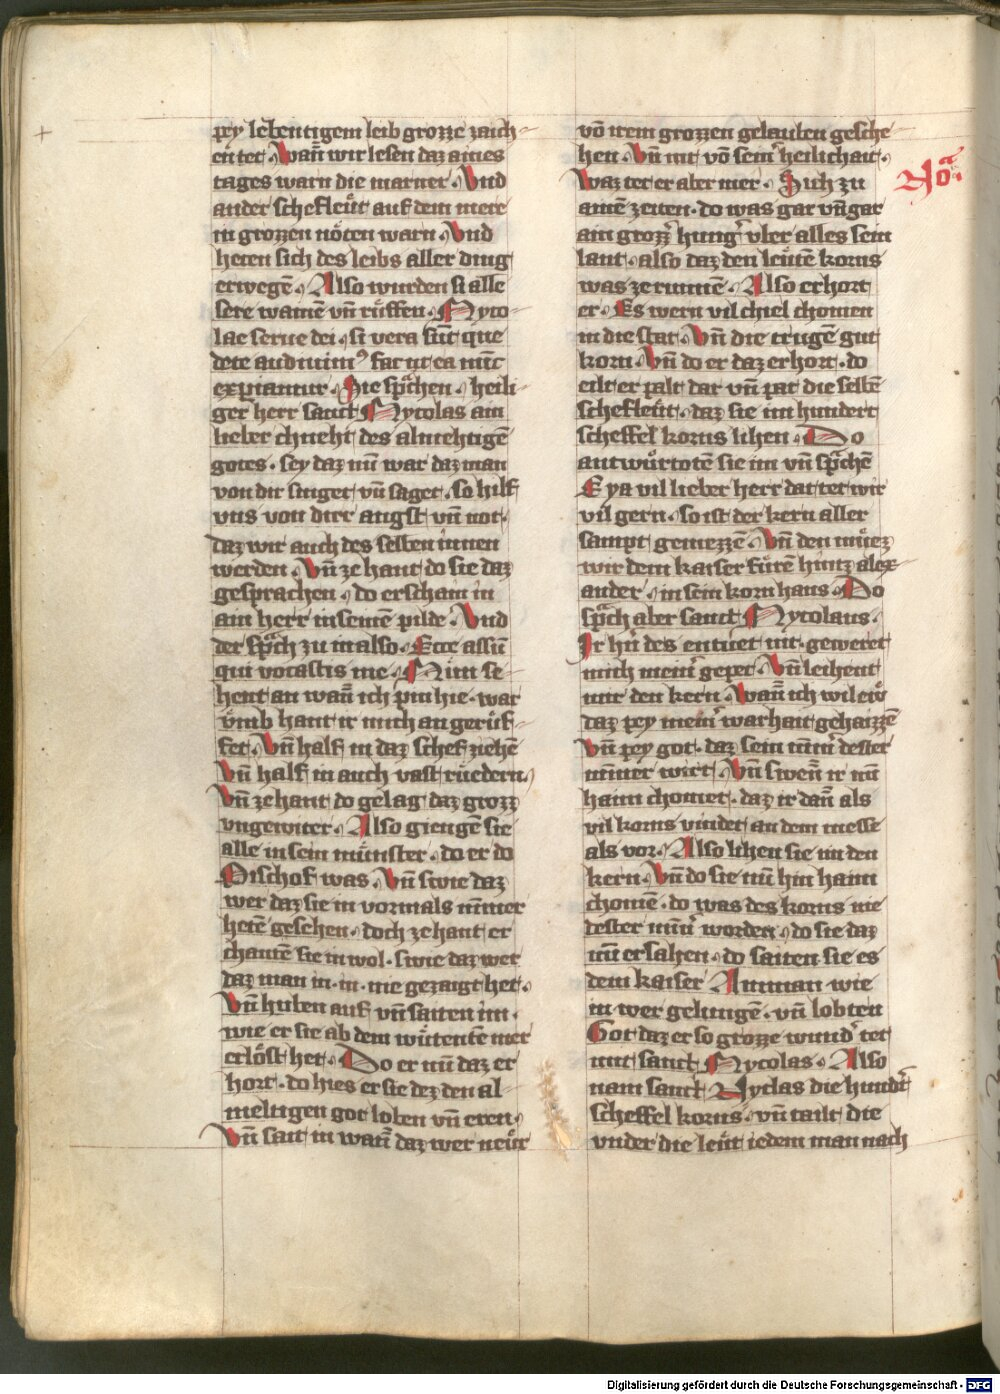 pey lebentigem leib grozze zaich-
en tet. Wann̄ wir lesen daz aines
tages warn die marner. Vnd
ander schefleüt auf dem mere
in grozzen nöten warn. Vnd
heten sich des leibs aller ding
erwegē. Also wurden si alle
sere wainē vn̄ rüffen. Nyco-
lae serue dei. si vera sūt que
de te audiuim⁹ fac vt ea nūc
experiantur. Sie sprachen. heili-
ger herr sanct Nycolas ain
lieber chneht des almehtigē
gotes. sey daz nū war daz man
von dir singet vn̄ saget. so hilf
vns von dirr angst vn̄ not.
daz wir auch des selben innen
werden. Vn̄ ze hant do sie daz
gesprachen. do erschain in
ain herr in seinē pilde. Vnd
der sprach zu in also. Ecce assū
qui vocastis me. Nim se-
hent an wann̄ ich pin hie. war
vmb hant ir mich an gerüf-
fet. Vn̄ half in daz schef ziehē
Vn̄ half in auch vast rüedern.
Vn̄ ze hant do gelag daz grozz
vngewiter. Also giengē sie
alle in sein münster. do er do
Pischof was. Vn̄ swie daz
wer daz sie in vormals nimmer
hetē gesehen. doch ze hant er
chantē sie in wol. swie daz wer
daz man in. in. nie gezaigt het.
Vn̄ huben auf vn̄ saiten im.
wie er sie ab dem wütentē mer
erlöst het. Do er nū daz er
hort. do hies er sie dez den al-
mehtigen got loben vn̄ eren.
Vn̄ sait in wann̄ daz wer neür
võ irem grozzen gelauben gesche-
hen. Vn̄ nit võ sein' heilichait.
Waz tet er aber mer. Sich zu
Noͣ.
ainē zeiten. do was gar vn̄ gar
ain grozz' hung' vber alles sein
lant. also daz den leütē korns
was zerunnē. Also erhort
er. Es wern vil chiel chomen
in die stat. Vn̄ die trugē gut
korn. Vn̄ do er daz erhort. do
eilt er palt dar vn̄ pat die selbē
schefleüt. daz sie im hundert
scheffel korns lihen. Do
antwürtotē sie im vn̄ sprachē
Eya vil lieber herr dat tet wir
vil gern. so ist der kern aller
sampt gemezzē. Vn̄ den müez
wir dem kaiser fürē hintz alex-
ander. in sein korn haus. Do
sprach aber sanct Nycolaus.
Ir hn̄ des entuet nit. geweret
mich mein' gepet. Vn̄ leihent
mir den kern. Wann̄ ich wil eẅ
daz pey mein' warhait gehaizzē
Vn̄ pey got. daz sein nim̄' dester
minner wirt. Vn̄ swenn̄ ir nū
haim chomet. daz ir dan̄ als
vil korns vindet an dem messe
als vor. Also lihen sie im den
kern. Vn̄ do sie nū hin haim
chomē. do was des korns nie
dester min̄' worden. do sie daz
nū ersahen. do saiten sie es
dem kaiser Annnan wie
in wer gelungē. vn̄ lobten
Got daz er so grozze wund' tet
mit sanct Nycolas. Also
nam sanct Nyclas die hund't
scheffel korns. vn̄ tailt die
vnder die leüt iedem man nach
Digitalisierung gefördert durch die Deutsche Forschungsgemeinschaft - DFG